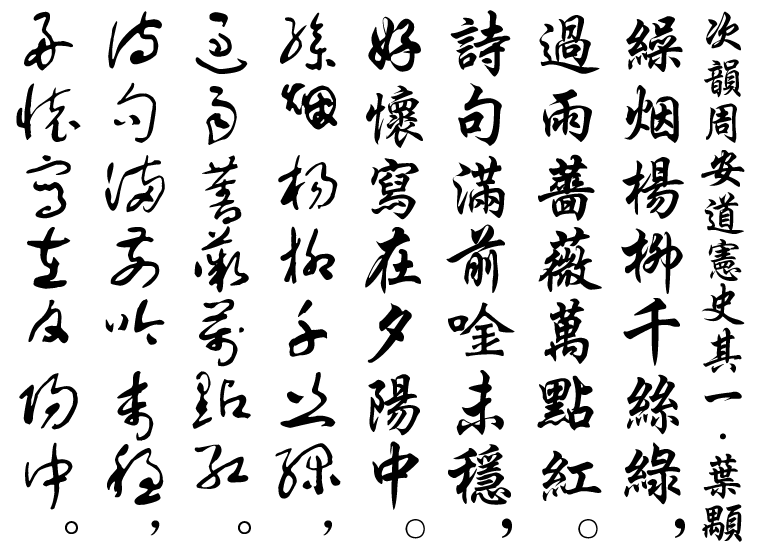 次韻周安道憲史其一·葉顒
繰烟楊柳千絲綠，
過雨薔薇萬點紅。
詩句滿前唫未穩，
好懷寫在夕陽中。
繰烟楊柳千絲綠，
過雨薔薇萬點紅。
詩句滿前吟未穩，
好懷寫在夕陽中。